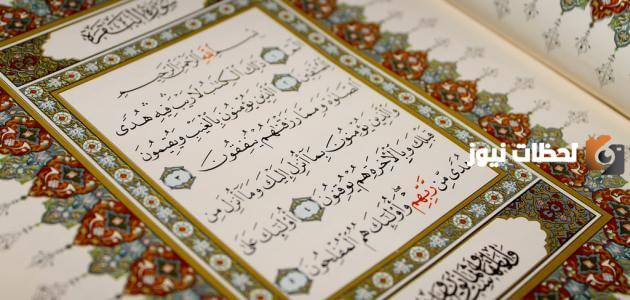 سورة البقرة
بِسْمِ اللَّهِ الرَّحْمَٰنِ الرَّحِيمِ
الٓمٓ ۝١ ذَٰلِكَ الْكِتَٰبُ لَا رَيْبَ فِيهِ هُدًى
لِّلْمُتَّقِينَ ۝٢ الَّذِينَ يُؤْمِنُونَ بِالْغَيْبِ وَيُقِيمُونَ
الصَّلَوٰةَ وَمِمَّا رَزَقْنَٰهُمْ يُنفِقُونَ ۝٣
وَالَّذِينَ يُؤْمِنُونَ بِمَا أُنزِلَ إِلَيْكَ وَمَا أُنزِلَ مِن
قَبْلِكَ وَبِالْآخِرَةِ هُمْ يُوقِنُونَ ۝٤ أُولَٰئِكَ عَلَىٰ
هُدًى مِّن رَّبِّهِمْ وَأُولَٰئِكَ هُمُ الْمُفْلِحُونَ ۝٥
لحظات نيوز